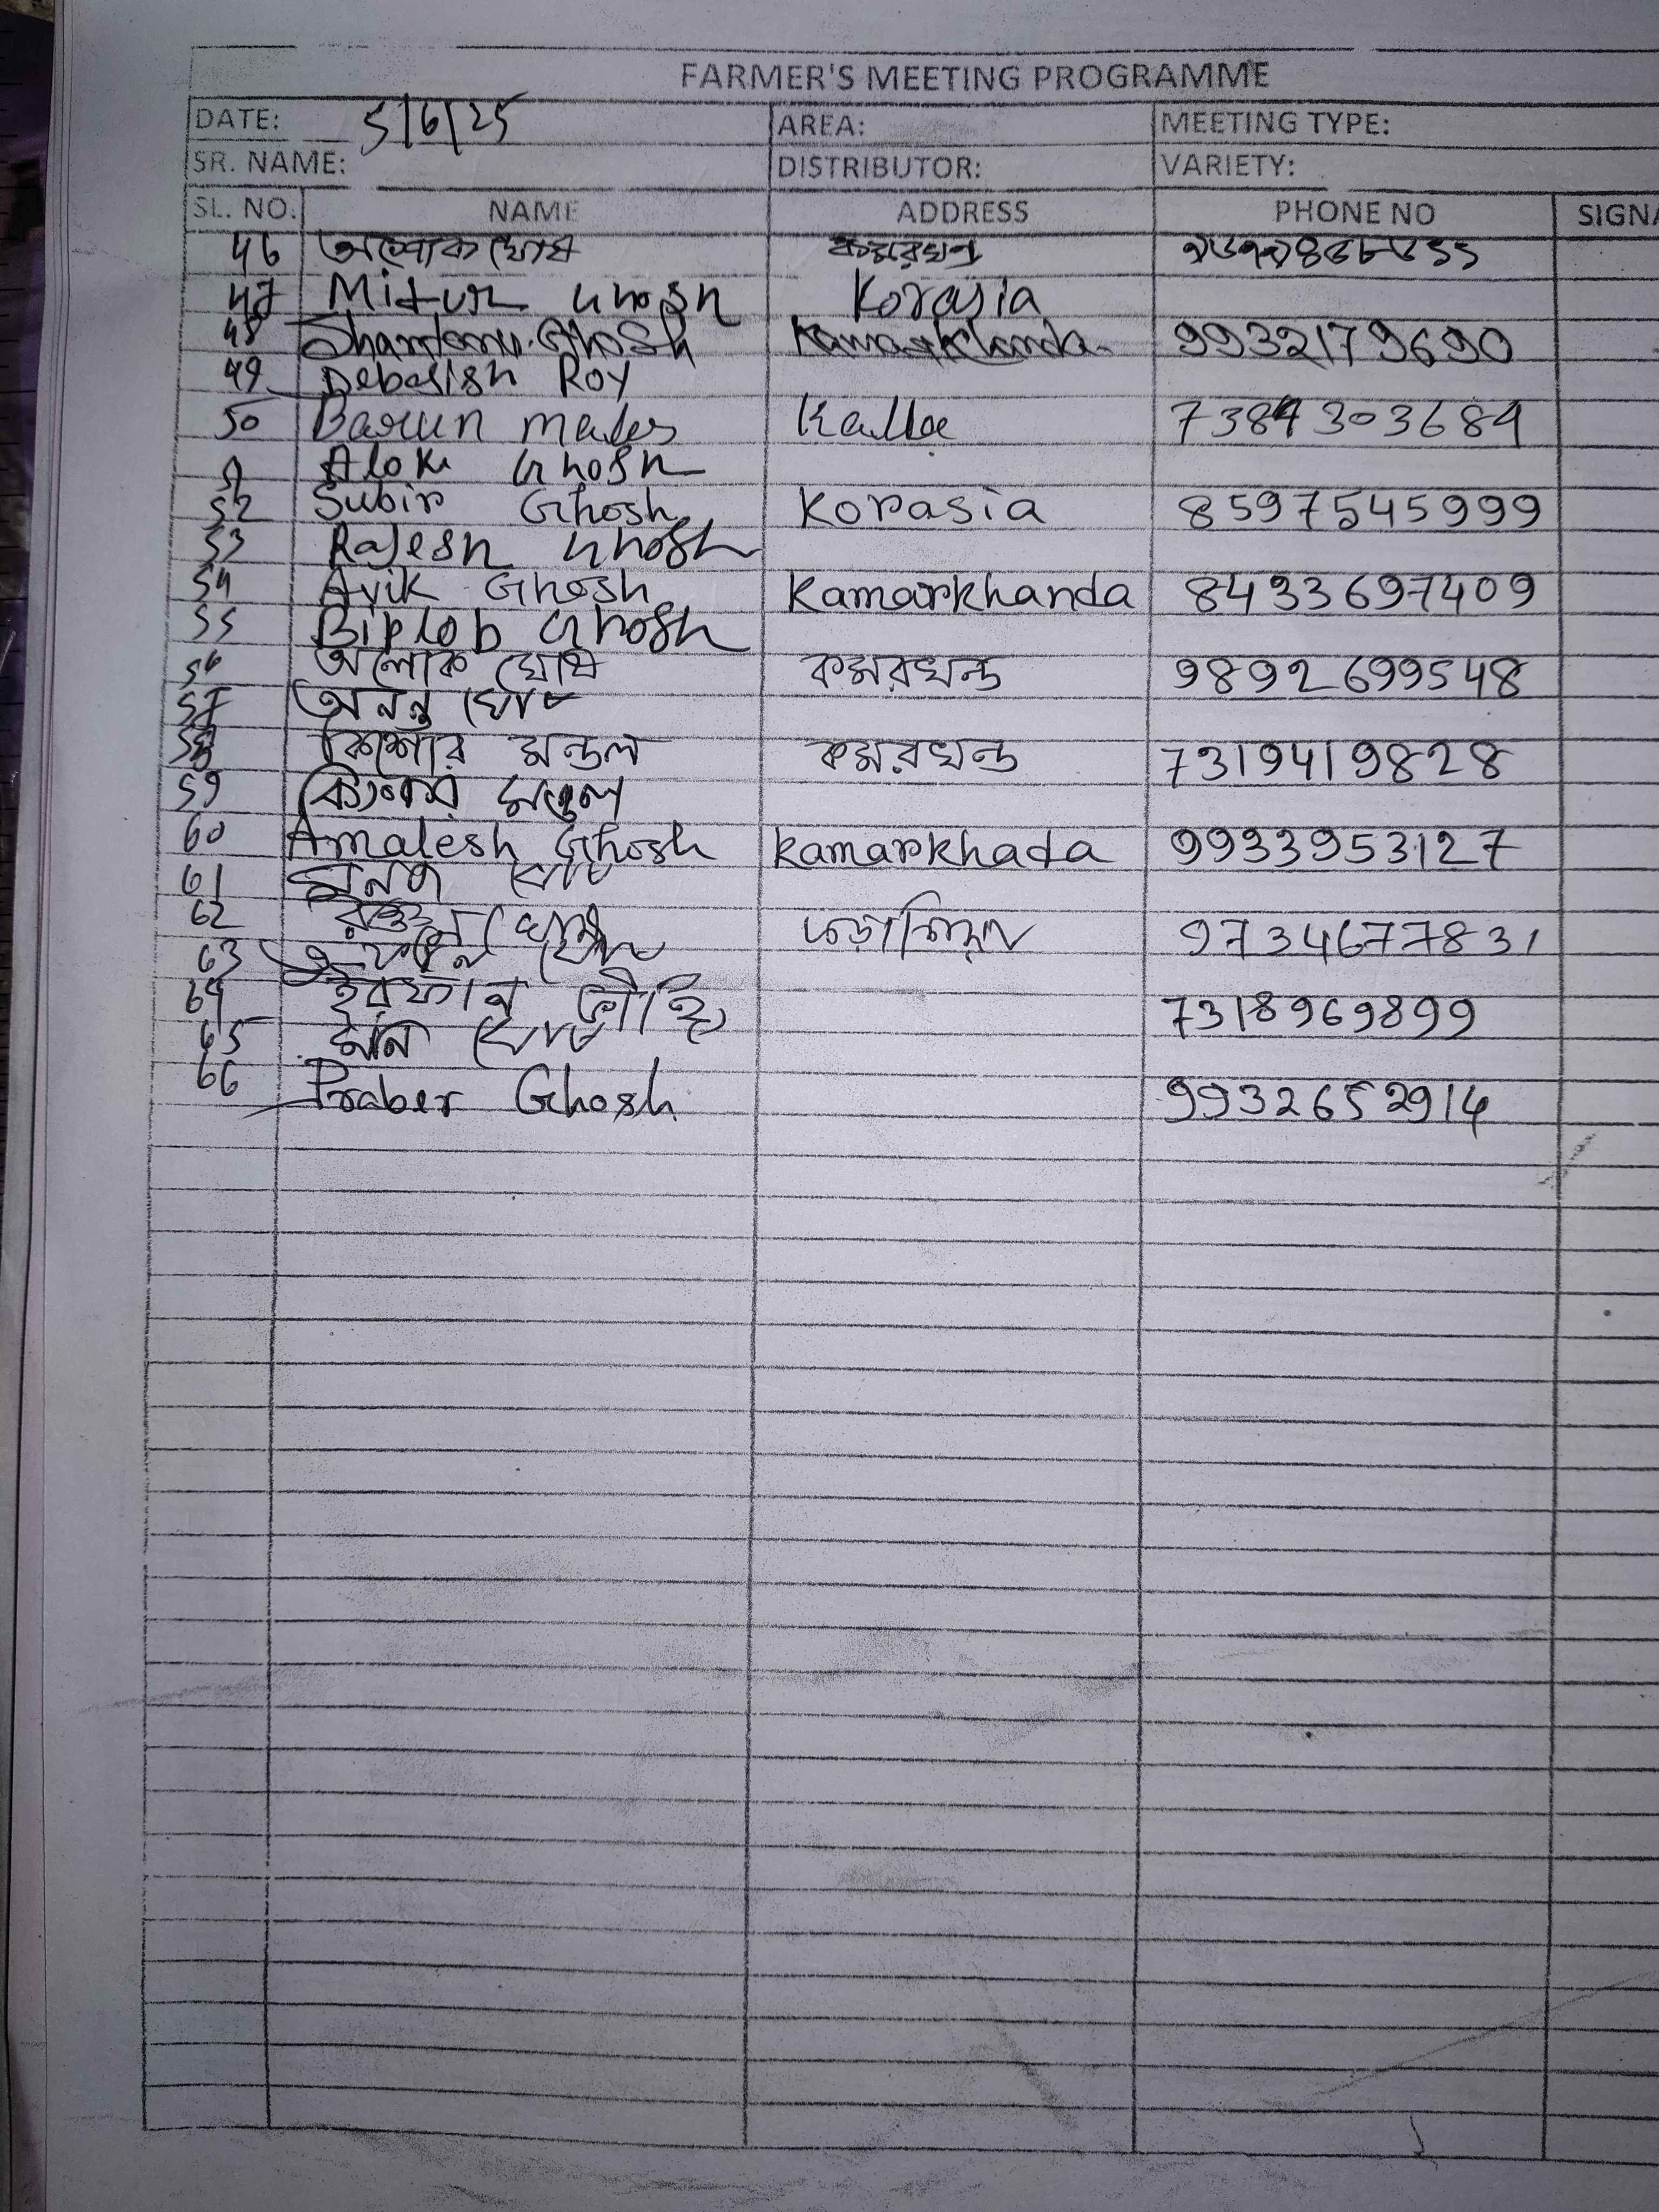 FARMER'S MEETING PROGRAMME
DATE: 5/6/25 AREA: MEETING TYPE:
SR. NAME: DISTRIBUTOR: VARIETY:
SL. NO. NAME ADDRESS PHONE NO
46 অশোক ঘোষ
47 Mitun Ghosh Korasia
48 Ghosh Kamarkhanda 9932179690
49 Debasish Roy
50 Barun 7384303684
51 Alok Ghosh
52 Subir Ghosh Korasia 8597545999
53 Rajesh Ghosh
54 Avik Ghosh Kamarkhanda 8433697409
55 Biplob Ghosh
56 অলোক ঘোষ কমরখন্ড 9892699548
57 অনন্ত ঘোষ
58 কিশোর মন্ডল কমরখন্ড 7319419828
59 মণ্ডল
60 Amalesh Ghosh Kamarkhada 9933953127
61 ঘোষ
62 ঘোষ 9734677831
63 ঘোষ
64 ইরফান 7318969899
65 মনি ঘোষ
66 Praber Ghosh 9932652914